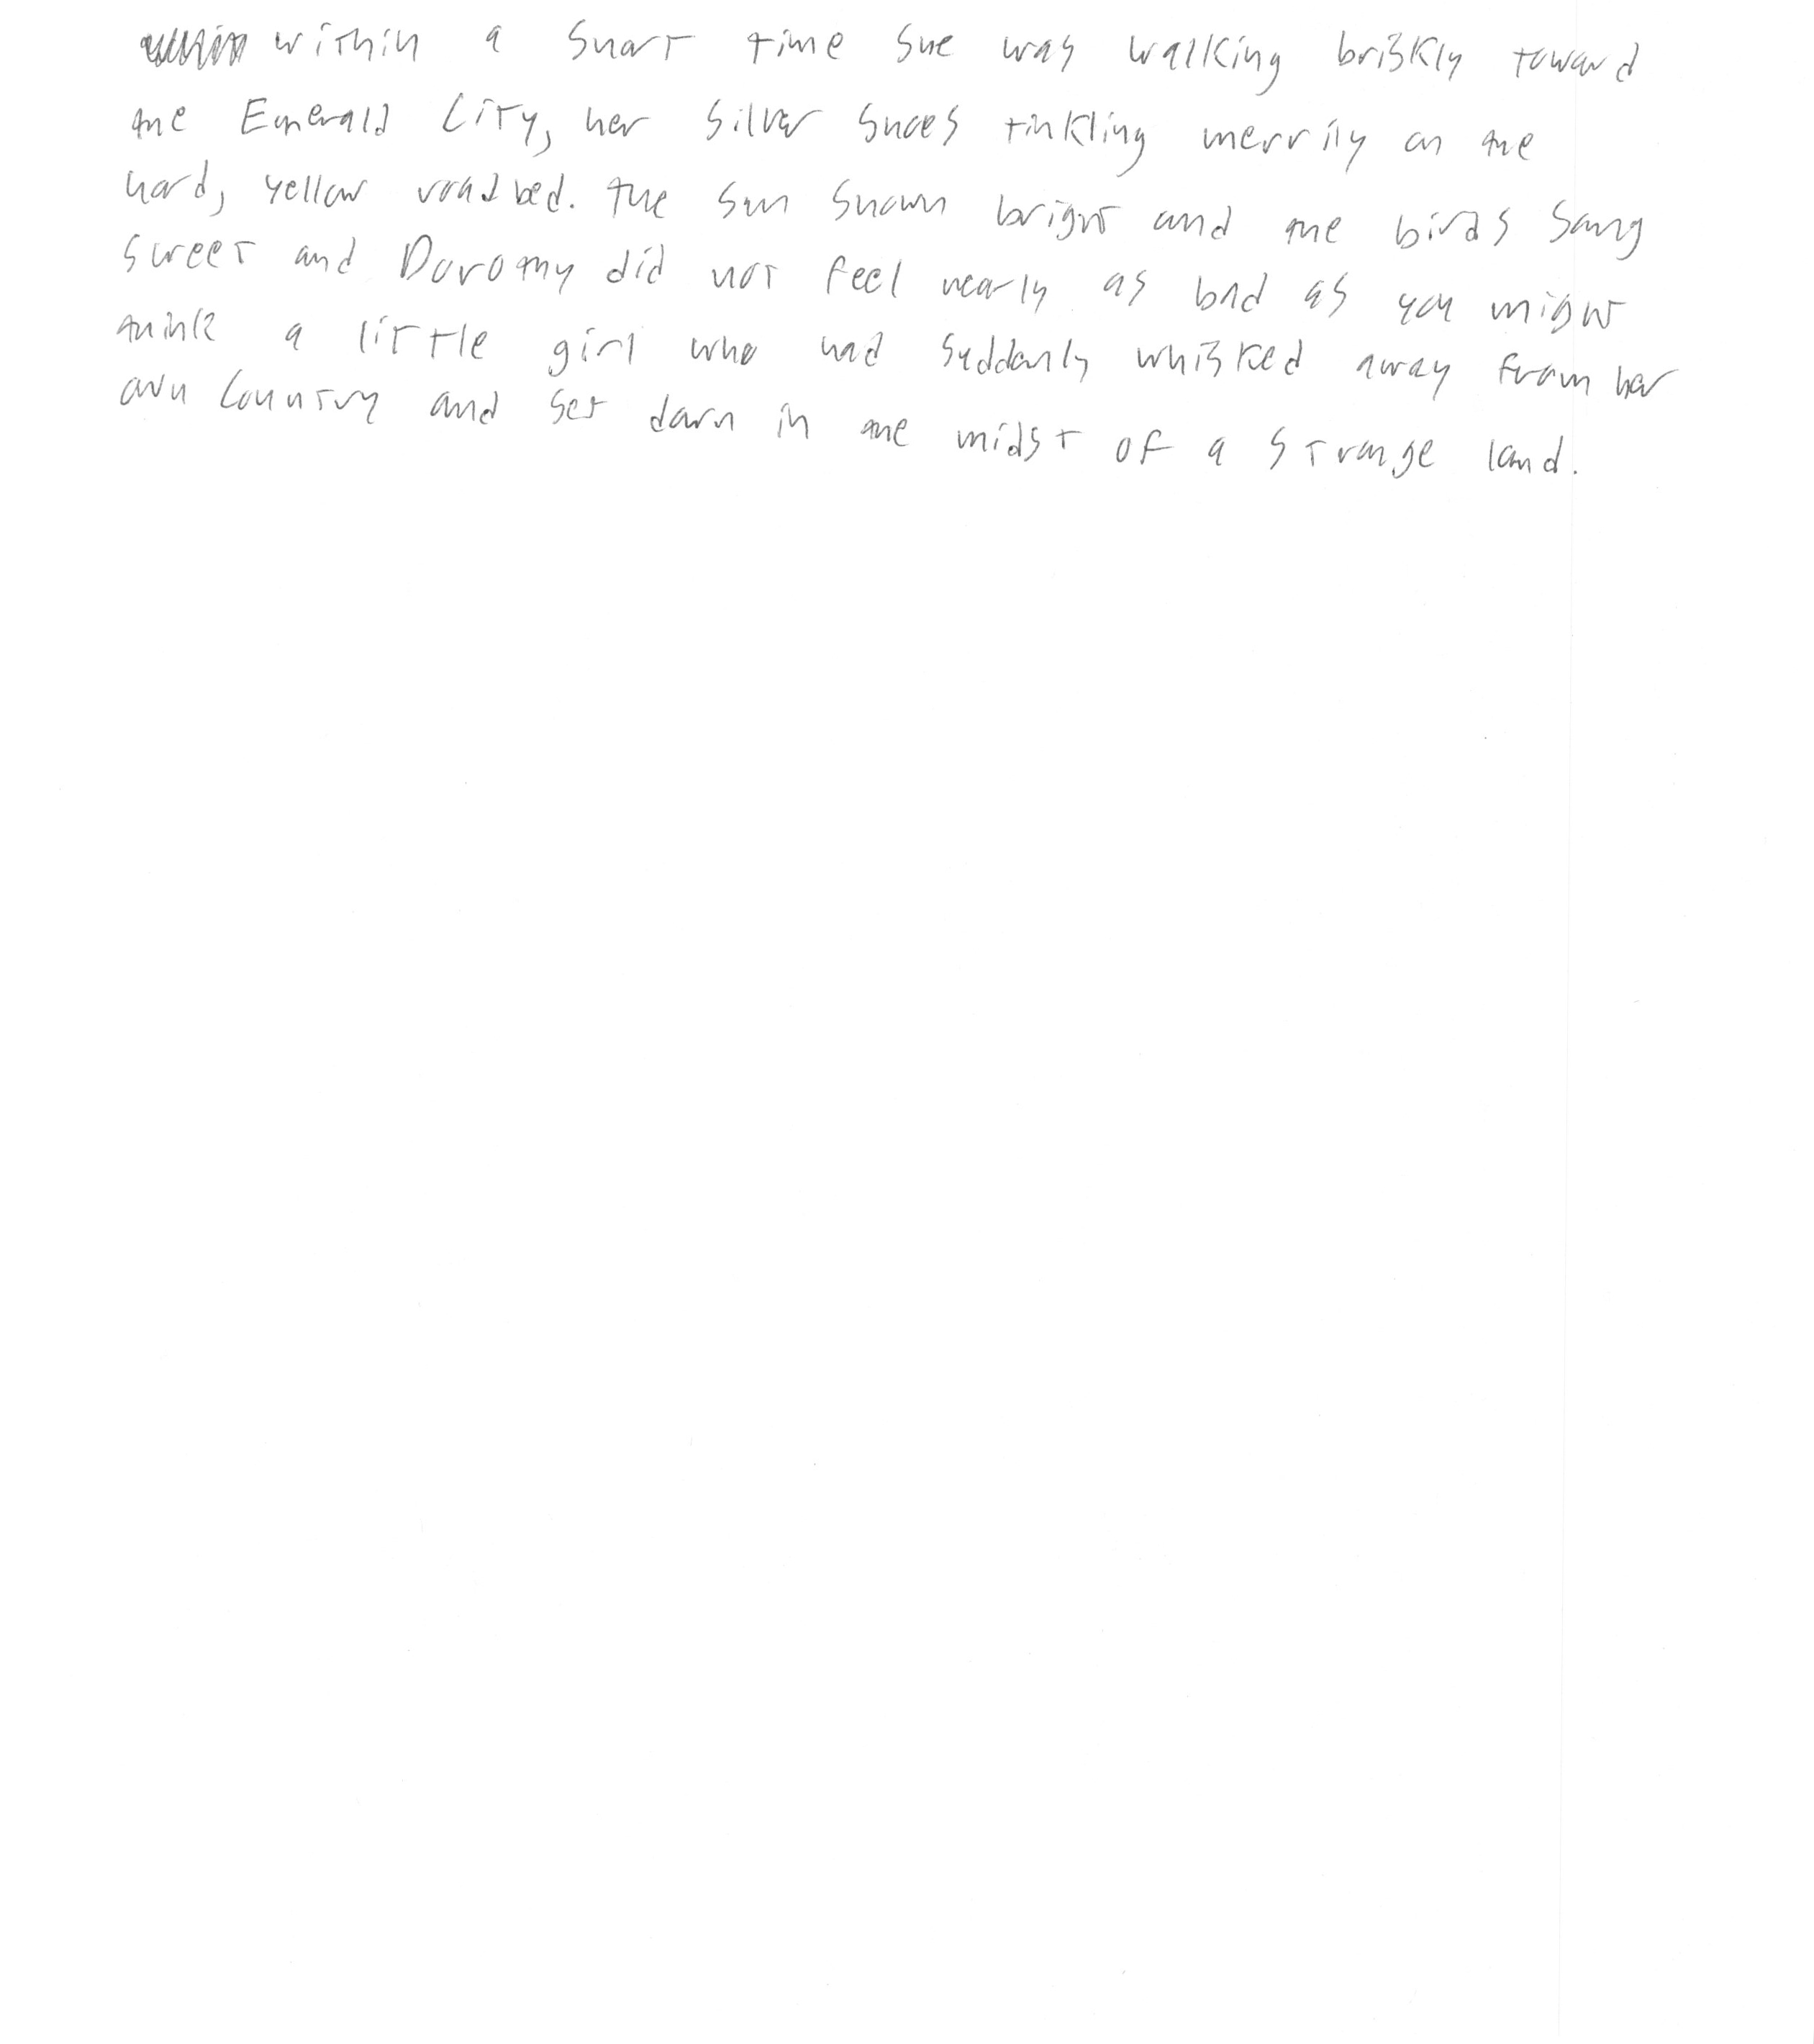 within a short time she was walking briskly toward
the Emerald City, her silver shoes tinkling merrily on the
hard, yellow roadbed. The sun shown bright and the birds sang
sweet and Dorothy did not feel nearly as bad as you might
think a little girl who had suddenly whisked away from her
own country and set down in the midst of a strange land.